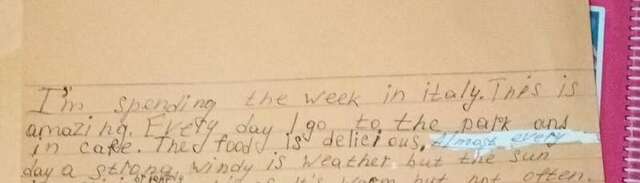 I'm spending the week in italy. This is
amazing. Every day I go to the park and
in cafe. The food is delicious. Almost every
day a strong windy is weather but the sun
it's warm but not often.